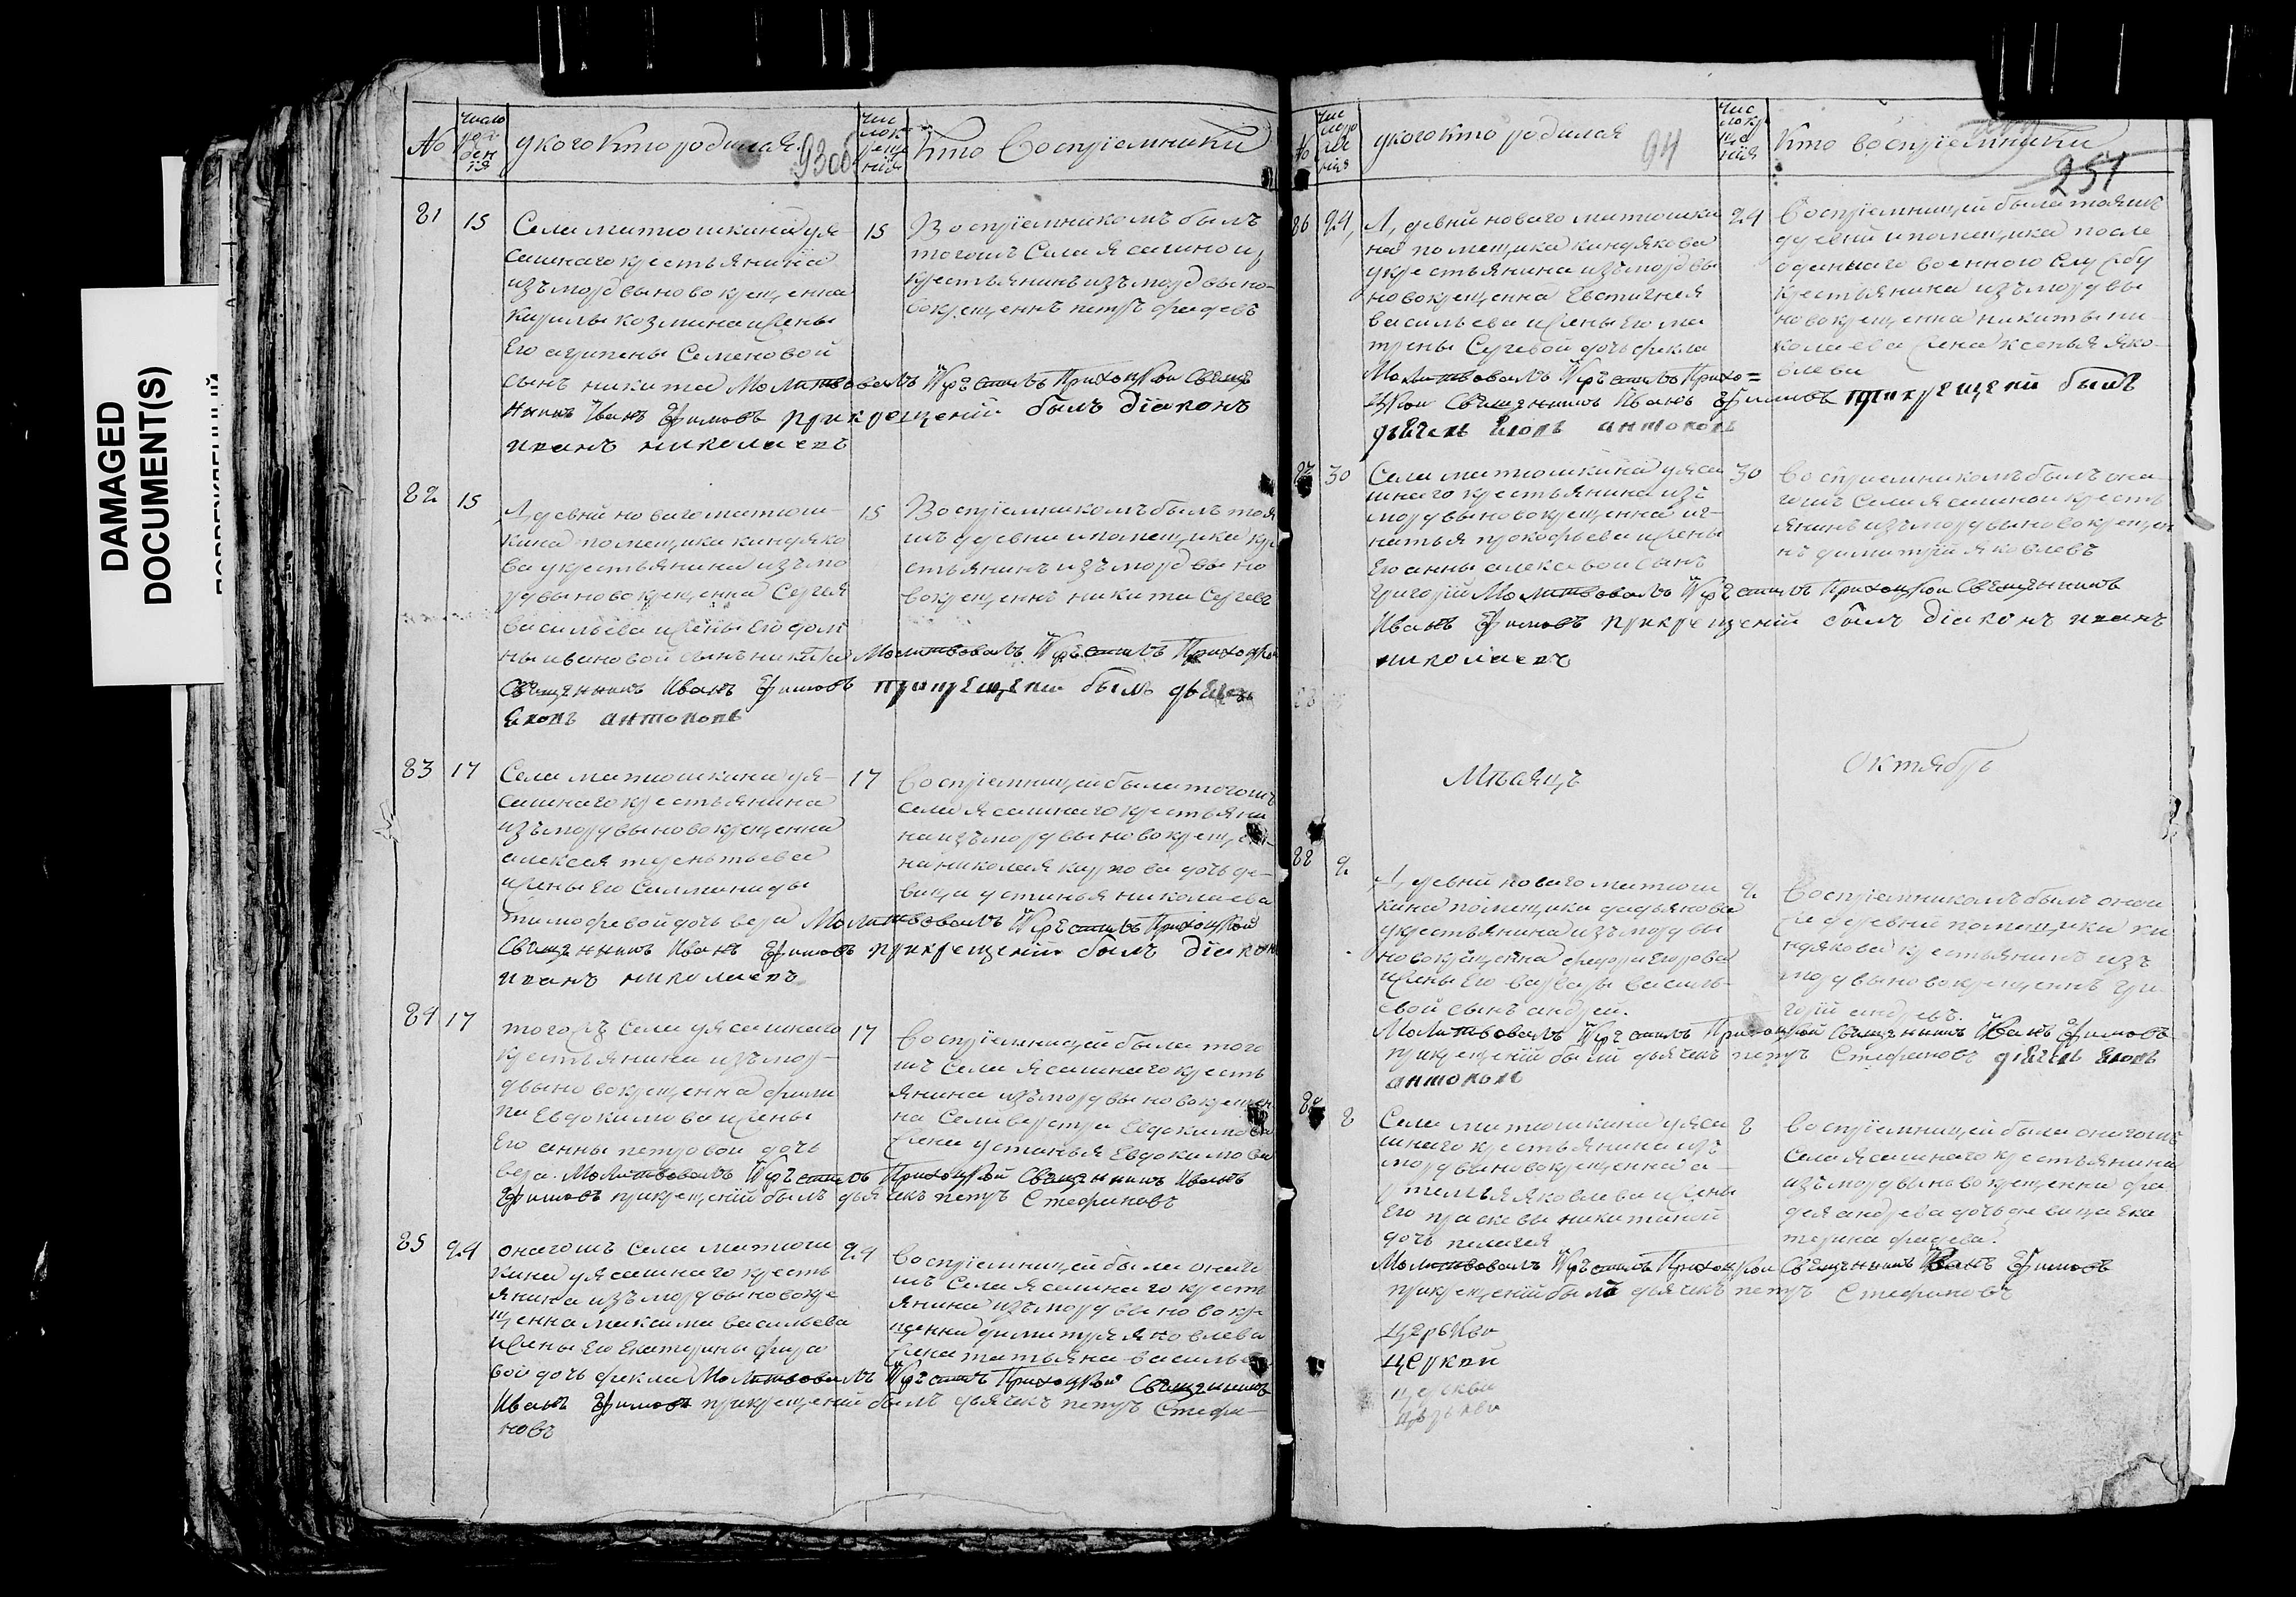 DAMAGED
DOCUMENT(S)
№
число рож ден ія
у кого кто родился
93об
чис ло к реще нія
кто восприемники
81
15
Села матюшкина у яс
сашнаго крестьянина
изъ мордвы новокрещенна
кирилы козмина жены
Его агрипены Семеновой
сынъ никита Молитвовалъ Крѣстилъ Приходской Свяще
нникъ Иванъ Ефимовъ при крещеніи былъ діаконъ
иванъ николаевъ
15
Восприемникомъ былъ
тогожъ Села Ясашной
крестьянинъ изъ мордвы но
вокрещеннъ петръ фадеевъ
82
15
Д, деревни новаго матюш
кина помещика киндяко
ва у крестьянина изъ мо
рдвы новокрещенна Сергея
васильева жены Его дом
ны ивановой сынъ никита Молитвовалъ Крѣстилъ Приходской
Священникъ Иванъ Ефимовъ при крещеніи былъ дьячекъ
Егоръ антоновъ
15
Восприемникомъ былъ тоя
жъ деревни и помещика кре
стьянинъ изъ мордвы но
вокрещеннъ никита Сергеевъ
83
17
Села матюшкина у я
сашнаго крестьянина
изъ мордвы новокрещенна
алексея терентьева
жены Его Саломаниды
тимофеевой дочь вера Молитвовалъ Крѣстилъ Приходской
Священникъ Иванъ Ефимовъ при крещеніи былъ діаконъ
иванъ николаевъ
17
Восприемницей была тогожъ
села Ясашнаго крестьяни
на изъ мордвы новокрещен
на николая карпова дочь де
вица устинья николаева
84
17
тогожъ Села у ясашнаго
крестьянина изъ мор
двы новокрещенна фили
па Евдокимова жены
Его анны петровой дочь
вера. Молитвовалъ Крѣстилъ Приходской Священникъ Иванъ
Ефимовъ при крещеніи былъ дьячекъ петръ Стефановъ
17
Восприемницей была того
жъ Села Ясашнаго кресть
янина изъ мордвы новокрещен
на Селиверстра Евдокимова
жена устинья Евдокимова
85
24
онагожъ Села матюш
кина у ясашнаго кресть
янина изъ мордвы новокре
щенна максима васильева
жены Его Екатерины фиро
вой дочь фекла Молитвовалъ Крѣстилъ Приходской Священникъ
Иванъ Ефимовъ при крещеніи былъ дьячекъ петръ Стефа
новъ
24
Восприемницей была онаго
жъ Села Ясашнаго кресть
янина изъ мордвы новокре
щенна димитрея яковлева
жена татьяна васильева
№
чис ло ро жде нія
у кого кто родился
94
чис ло кр ще нія
кто восприемники
251
86
24
Д, деревни новаго матюшки
на помещика киндякова
у крестьянина изъ мордвы
новокрещенна Евстигнея
васильева жены Его ма
трены Сергевой дочь фекла
Молитвовалъ Крѣстилъ Прихо=
цкой Священникъ Иванъ Ефимовъ при крещеніи былъ
дьячекъ Егоръ антоновъ
24
Восприемницей была тояжъ
деревни и помещика после
отданнаго военного Службу
крестьянина изъ мордвы
новокрещенна никиты ни
колаева жена ксенья яко
влева
87
30
Села матюшкина у яса
шнаго крестьянина изъ
мордвы новокрещенна иг
натья прокофьева жены
Его анны алексевой сынъ
григорій Молитвовалъ Крѣстилъ Приходской Священникъ
Иванъ Ефимовъ при крещеніи былъ діаконъ иванъ
николаевъ
30
Восприемникомъ былъ она
гожъ Села Ясашной кресть
янинъ изъ мордвы новокрещен
нъ димитрій яковлевъ
Мѣсяцъ
Октябрь
88
2
Д, деревни новаго матюш
кина помещика дедьякова
у крестьянина изъ мордвы
новокрещенна федора Егорова
жены Его варвары василь
евой сынъ андрей.
Молитвовалъ Крѣстилъ Приходской Священникъ Иванъ Ефимовъ
при крещеніи были дьячекъ петръ Стефановъ дьячекъ Егоръ
антоновъ
2
Восприемникомъ былъ оной
же деревни помещика ки
ндякова крестьянинъ изъ
мордвы новокрещеннъ гри
горій андреевъ.
89
8
Села матюшкина у яса
шнаго крестьянина изъ
мордвы новокрещенна а
ртемья яковлева жены
Его прасковьи никитиной
дочь пелагея
Молитвовалъ Крѣстилъ Приходской Священникъ Иванъ Ефимовъ
при крещеніи былъ дьячекъ петръ Стефановъ
8
Восприемницей была онагожъ
Села Ясашнаго крестьянина
изъ мордвы новокрещенна фа
дея андреева дочь девица Ека
терина фадеева.
Церькви
церкви
церкви
церькви